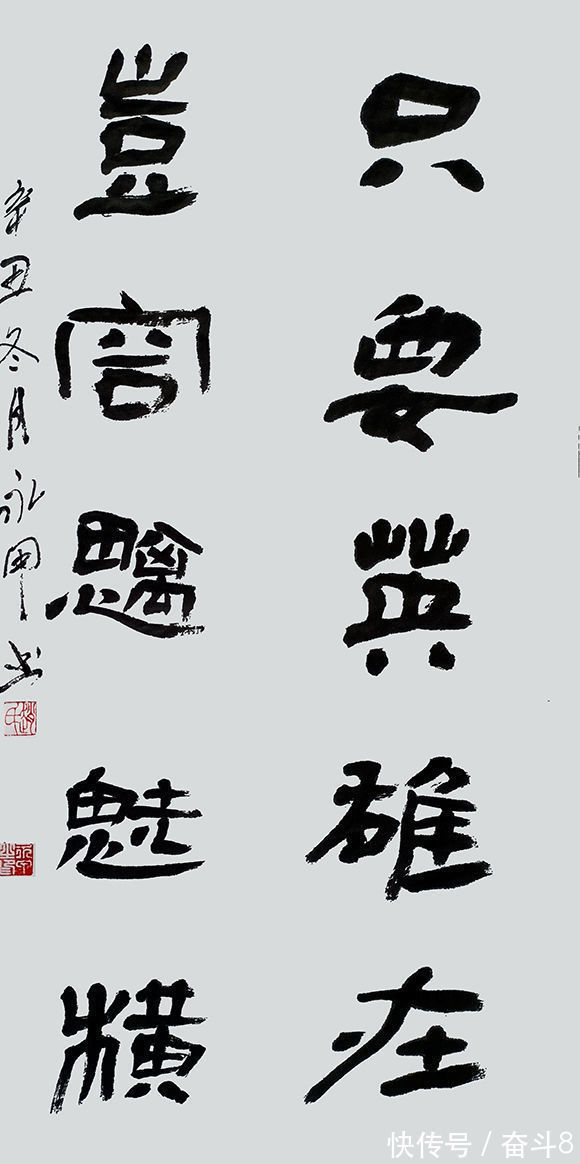 只要英雄在
豈容魑魅橫
辛丑冬月永甲书
快传号 / 奋斗8